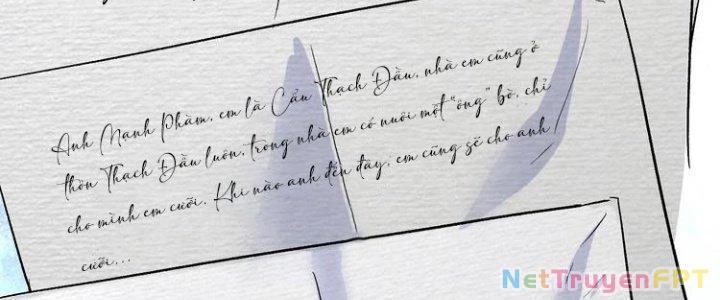 Anh Mạnh Phàm, em là Cẩu Thạch Đầu, nhà em cũng ở
thôn Thạch Đầu luôn, trong nhà em có nuôi một "ông" bò, chỉ
cho mình em cưỡi. Khi nào anh đến đây, em cũng sẽ cho anh
cưỡi...
NetTruyenFPT